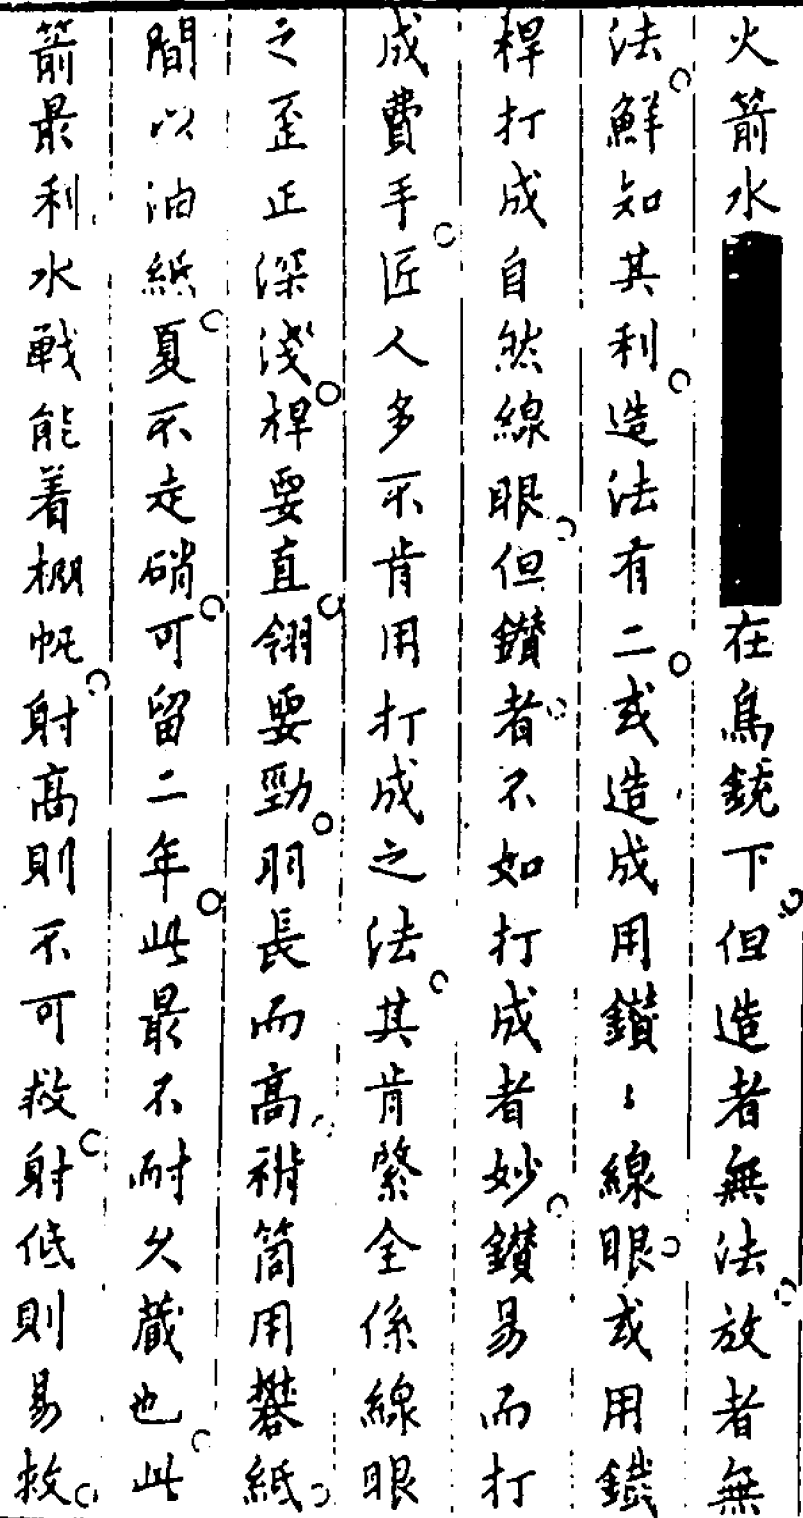 火箭水在鳥銃下但造者無法放者無
法鮮知其利造法有二或造成用鑽〻線眼或用鐵
桿打成自然線眼但鑽者不如打成者妙鑽易而打
成費手匠人多不肯用打成之法其肯綮全係線眼
之歪正深淺桿要直翎要勁羽長而高褙筒用礬紙
間以油紙夏不走硝可留二年此最不耐久蔵也此
箭最利水戰能着棚帆射高則不可救射低則易救